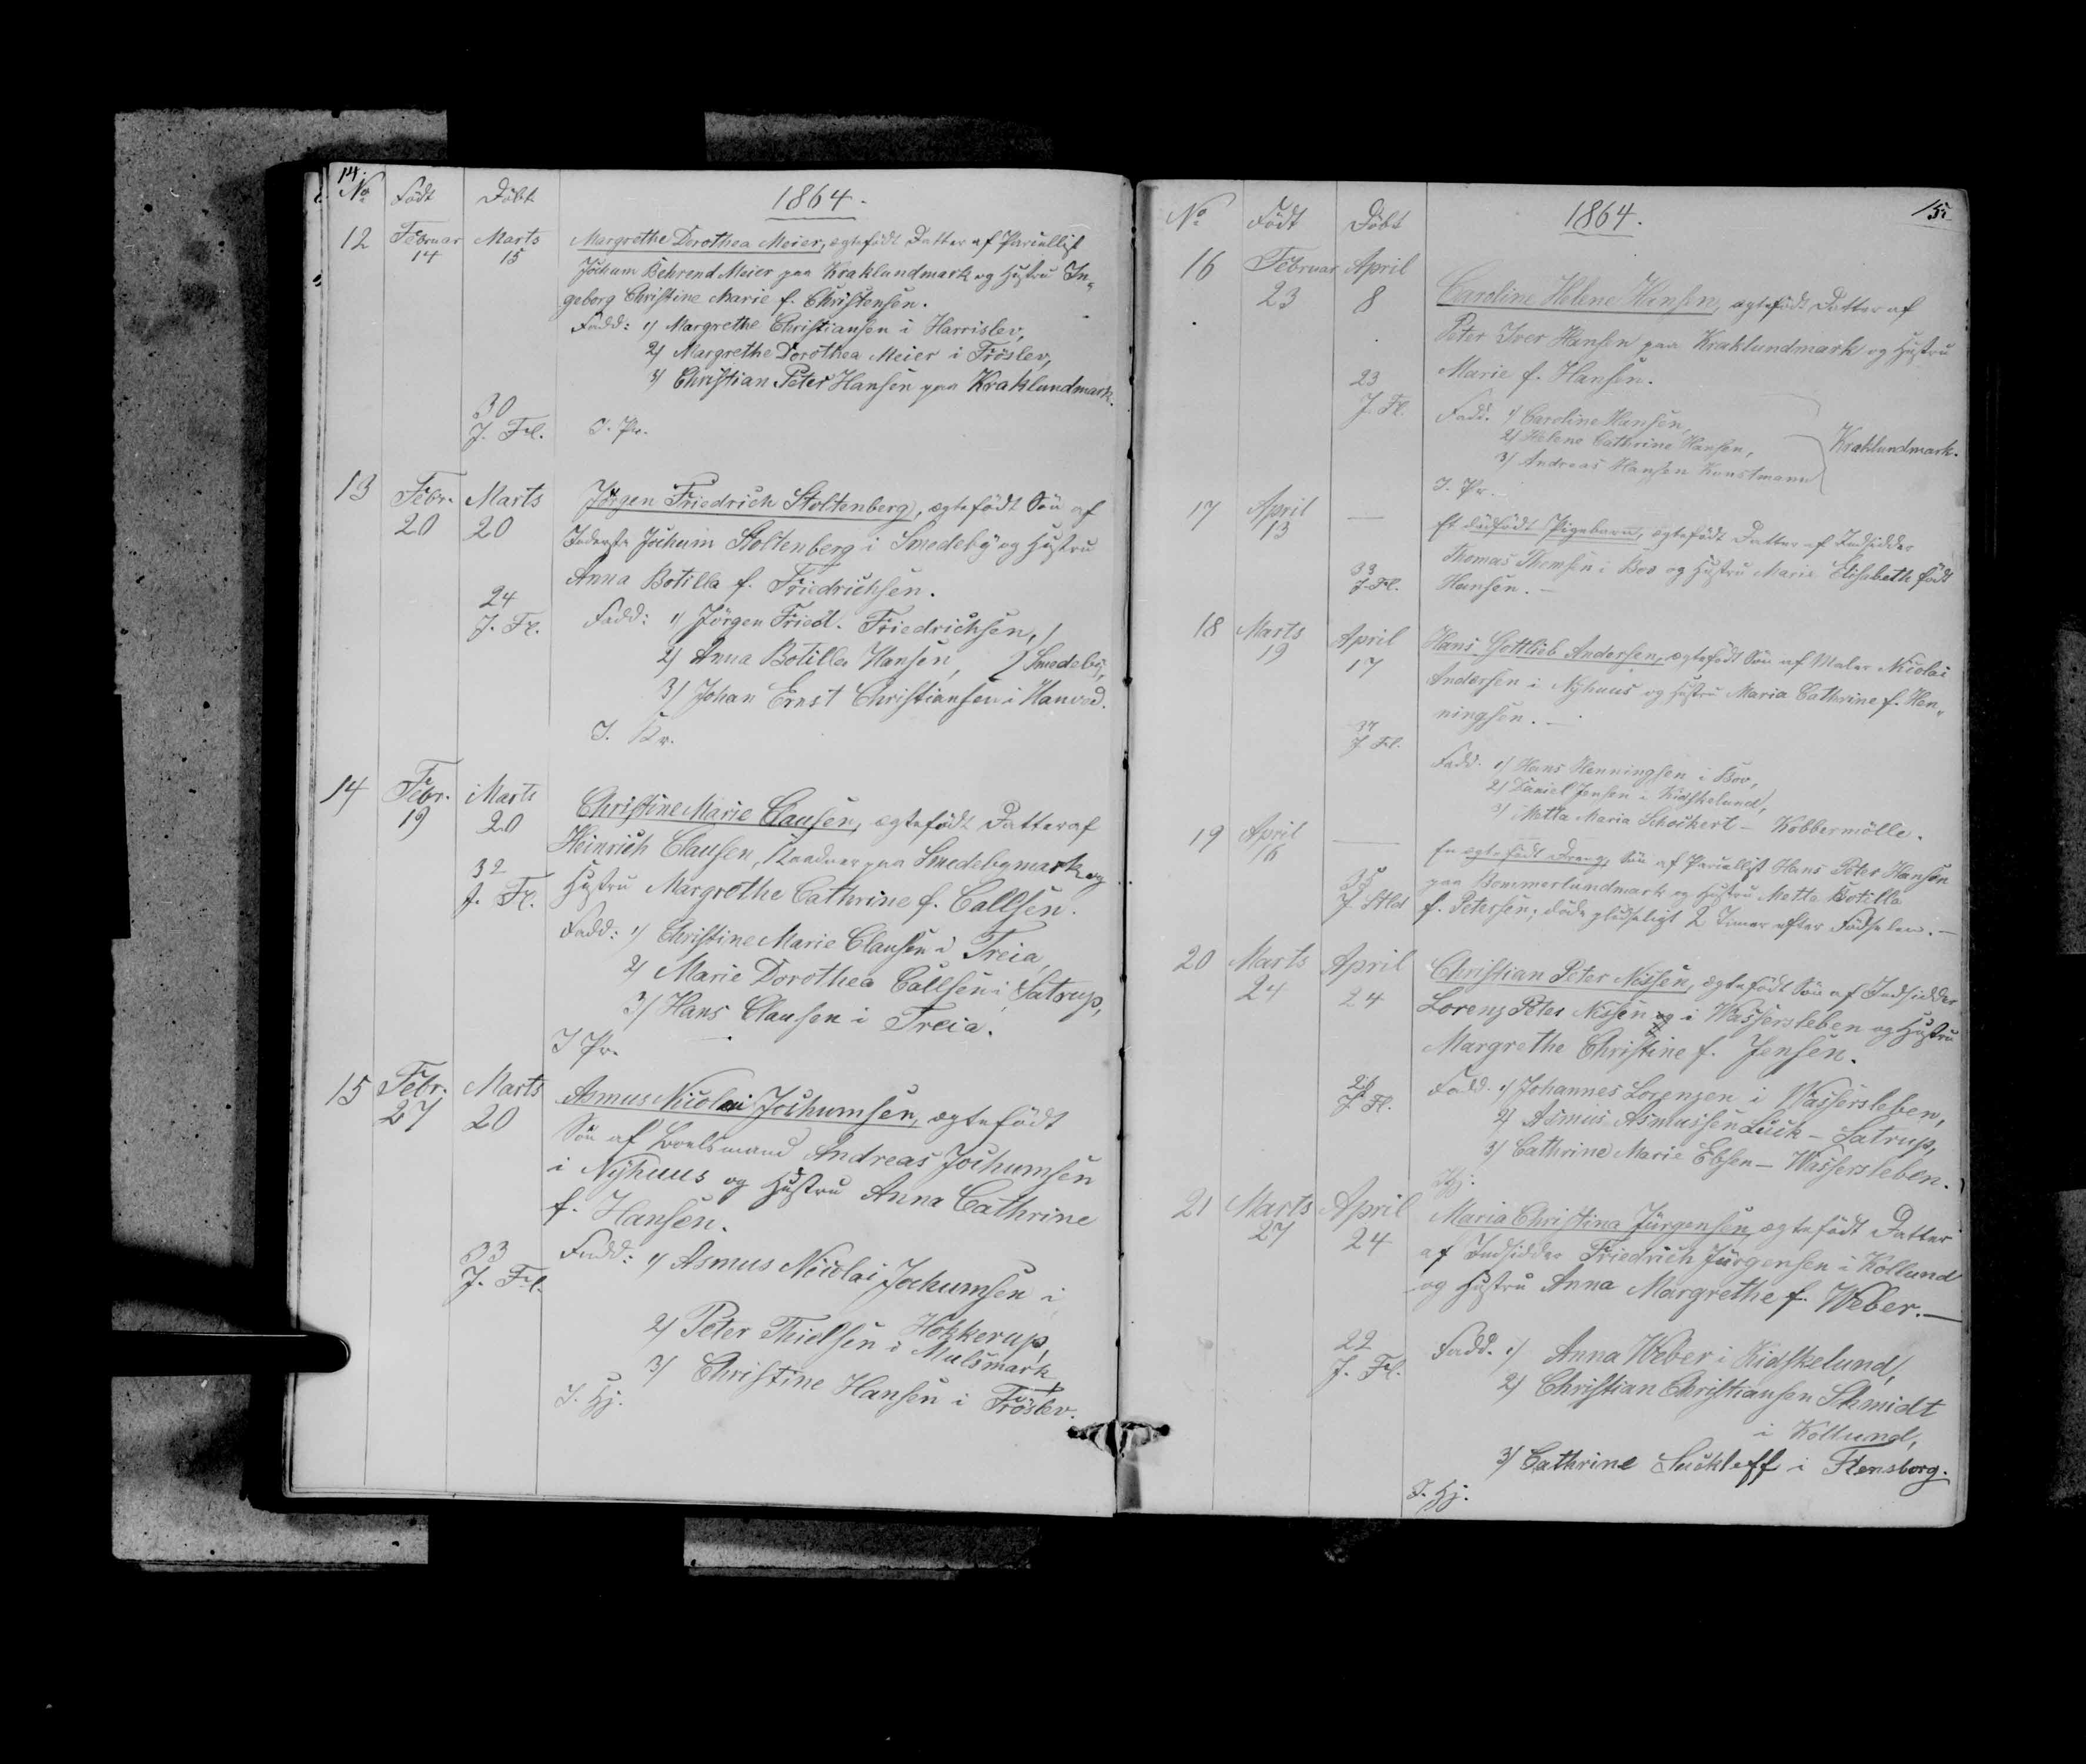 14.
No Födt Döbt 1864.
12 Februar Marts Margrethe Dorothea Meier, ægtefödt Datter af Parcellist
14 15 Jocham Behrend Meier paa Kraklundmark og Hustru In-
geborg Christine Marie f. Christensen.
Fadd: 1) Margrethe Christiansen i Harrislev,
2) Margrethe Dorothea Meier i Fröslev,
3) Christian Peter Hansen paa Kraklundmark.
30
J. Fl. J. Pr.
13 Febr. Marts Jörgen Friedrich Stoltenberg, ægtefödt Sön af
20 20 Inderste Jochum Stoltenberg i Smedeby og Hustru
Anna Botilla f. Friedrichsen.
24
J. Fl. Fadd: 1) Jörgen Fried. Friedrichsen,
2) Anna Botilla Hansen, Smedeby,
3) Johan Ernst Christiansen i Hanved.
J. Kr.
14 Febr. Marts Christine Marie Clausen, ægtefödt Datter af
19 20 Heinrich Clausen, paa Smedebymark og
32 Hustru Margrethe Cathrine f. Callsen.
J. Fl. Fadd: 1) Christine Marie Clausen i Treia,
2) Marie Dorothea Callsen i Satrup,
3) Hans Clausen i Treia.
J Pr.
15 Febr. Marts Asmus Nicolai Jochumsen, ægtefödt
27 20 Sön af Boelsmand Andreas Jochumsen
i Nyhuus og Hustru Anna Cathrine
f. Hansen.
33 Fadd: 1) Asmus Nicolai Jochumsen i
J. Fl. Hokkerup,
2) Peter Thielsen i Mulsmark
3) Christine Hansen i Fröslev.
J. Hj.
15.
No Födt Döbt 1864.
16 Februar April
23 8 Caroline Helene Hansen, ægtefödt Datter af
Peter Iver Hansen paa Kraklundmark og Hustru
Marie f. Hansen.
23
J. Fl. Fadd. 1) Caroline Hansen,
2) Helene Cathrine Hansen, Kraklundmark.
3) Andreas Hansen Kunstmann
J. Pr.
17 April — Et dödfödt Pigebarn, ægtefödt Datter af Indsidder
13 Thomas Thomsen i Bov og Hustru Marie Elisabeth födt
33
J. Fl. Hansen. —
18 Marts April Hans Gottlieb Andersen, ægtefödt Sön af Maler Nicolai
19 17 Andersen i Nyhuus og Hustru Maria Cathrine f. Hen-
ningsen. —
37
J. Fl. Fadd. 1) Hans Henningsen i Bov,
2) Daniel Jensen i Kidskelund,
3) Metta Maria Schockert — Kobbermölle.
19 April — En ægtefödt Dreng, Sön af Parcellist Hans Peter Hansen
16 paa Bommerlundmark og Hustru Metta Botilla
35
J. f. Petersen; döde pludseligt 2 Timer efter Födselen. —
20 Marts April Christian Peter Nissen, ægtefödt Sön af Indsidder
24 24 Lorenz Peter Nissen i Wassersleben og Hustru
Margrethe Christine f. Jensen.
26
J. Fl. Fadd. 1) Johannes Lorenzen i Wassersleben,
2) Asmus Asmussen Lück — Satrup,
3) Cathrine Marie Ebsen — Wassersleben.
Hj.
21 Marts April Maria Christina Jürgensen, ægtefödt Datter
27 24 af Indsidder Friedrich Jürgensen i Kollund
og Hustru Anna Margrethe f. Weber. —
22
J. Fl. Fadd. 1) Anna Weber i Kidskelund,
2) Christian Christiansen Schmidt
i Kollund,
3) Cathrine i Flensborg.
J. Hj.